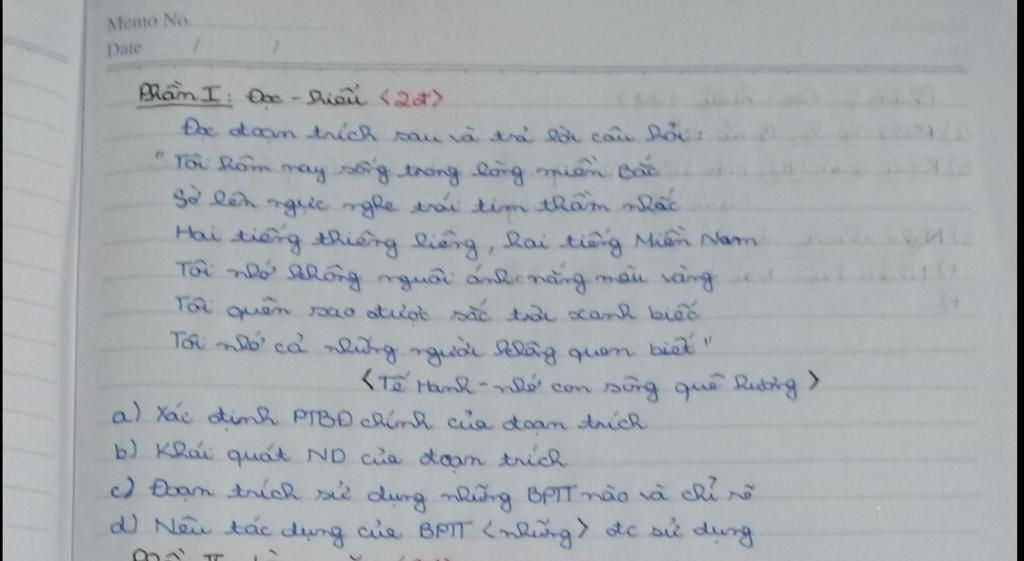 Memo No.
Date / /
Phần I: Đọc - hiểu <2đ>
Đọc đoạn trích sau và trả lời câu hỏi:
"Tôi hôm nay sống trong lòng miền Bắc
Sờ lên ngực nghe trái tim thầm nhắc
Hai tiếng thiêng liêng, hai tiếng Miền Nam
Tôi nhớ không nguôi ánh nắng màu vàng
Tôi quên sao được sắc trời xanh biếc
Tôi nhớ cả những người không quen biết"
<Tế Hanh - nhớ con sông quê hương>
a) Xác định PTBĐ chính của đoạn trích
b) Khái quát ND của đoạn trích
c) Đoạn trích sử dụng những BPTT nào và chỉ rõ
d) Nêu tác dụng của BPTT <những> đc sử dụng